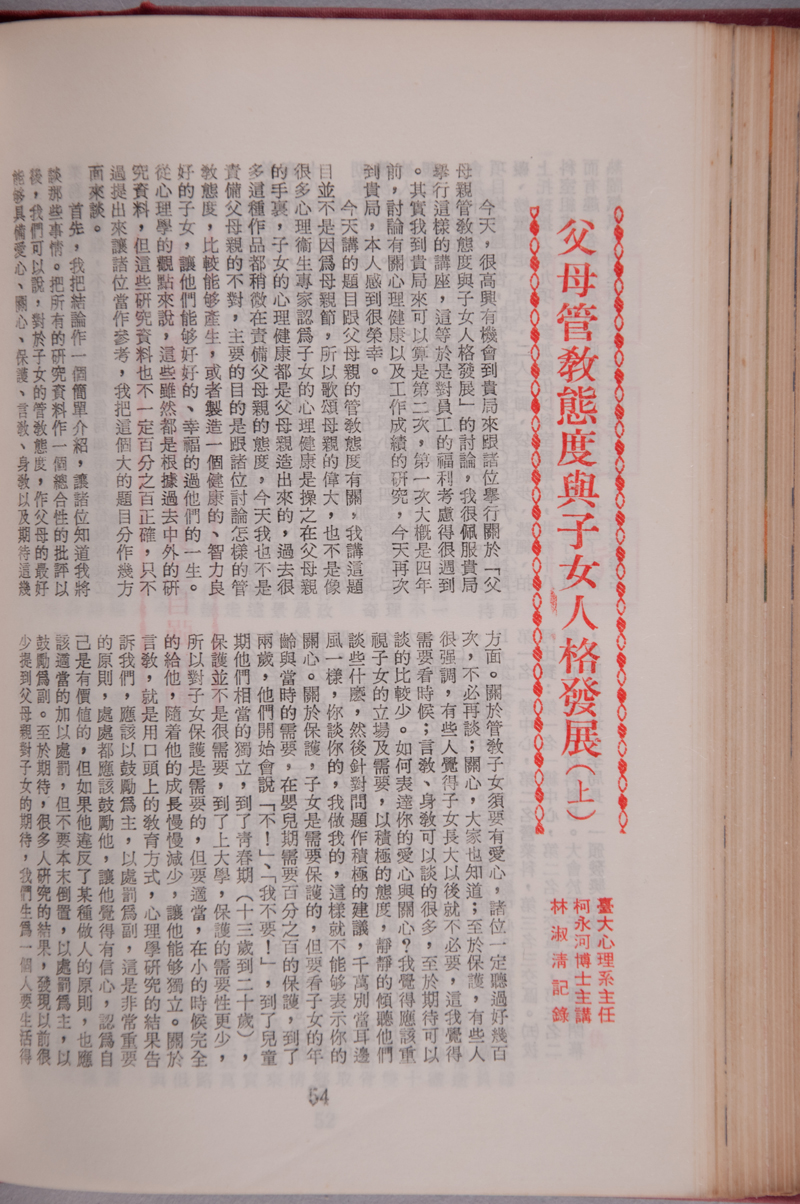 父母管教態度與子女人格發展（上）
臺大心理系主任
柯永河博士主講
林淑清記錄
今天，很高興有機會到貴局來跟諸位舉行關於「父
母親管教態度與子女人格發展」的討論，我很佩服貴局
舉行這樣的講座，這等於是對員工的福利考慮得很週到
。其實我到貴局來可以算是第二次，第一次大概是四年
前，討論有關心理健康以及工作成績的研究，今天再次
到貴局，本人感到很榮幸。
今天講的題目跟父母親的管教態度有關。我講這題
目並不是因爲母親節，所以歌頌母親的偉大，也不是像
很多心理衞生專家認爲子女的心理健康是操之在父母親
的手裏，子女的心理健康都是父母親造出來的，過去很
多這種作品都稍微在責備父母親的態度，今天我也不是
責備父母親的不對，主要的目的是跟諸位討論怎樣的管
教態度，比較能够產生，或者製造一個健康的、智力良
好的子女，讓他們能够好好的、幸福的過他們的一生。
從心理學的觀點來說，這些雖然都是根據過去中外的研
究資料，但這些研究資料也不一定百分之百正確，只不
過提出來讓諸位當作參考，我把這個大的題目分作幾方
面來談。
首先，我把結論作一個簡單介紹，讓諸位知道我將
談那些事情。把所有的研究資料作一個總合性的批評以
後，我們可以說，對於子女的管教態度，作父母的最好
能够具備愛心、關心、保護、言教、身教以及期待這幾
方面。關於管教子女須要有愛心，諸位一定聽過好幾百
次，不必再談；關心，大家也知道；至於保護，有些人
很强調，有些人覺得子女長大以後就不必要，這我覺得
需要看時候；言教、身教可以談的很多，至於期待可以
談的比較少。如何表達你的愛心與關心？我覺得應該重
視子女的立場及需要，以積極的態度，靜靜的傾聽他們
談些什麽，然後針對問題作積極的建議，千萬別當耳邊
風一樣，你談你的，我做我的，這樣就不能够表示你的
關心。關於保護，子女是需要保護的，但要看子女的年
齡與當時的需要，在嬰兒期需要百分之百的保護，到了
兩歲，他們開始會說「不！」、「我不要！」，到了兒童
期他們相當的獨立，到了青春期（十三歲到二十歲），
保護並不是很需要，到了上大學，保護的需要性更少，
所以對子女保護是需要的，但要適當，在小的時候完全
的給他，隨着他的成長慢慢減少，讓他能够獨立。關於
言教，就是用口頭上的教育方式，心理學研究的結果告
訴我們，應該以鼓勵爲主，以處罰爲副，這是非常重要
的原則，處處都應該鼓勵他，讓他覺得有信心，認爲自
己是有價値的，但如果他違反了某種做人的原則，也應
該適當的加以處罰，但不要本末倒置，以處罰爲主，以
鼓勵爲副。至於期待，很多人研究的結果，發現以前很
少提到父母親對子女的期待，我們生爲一個人要生活得
54